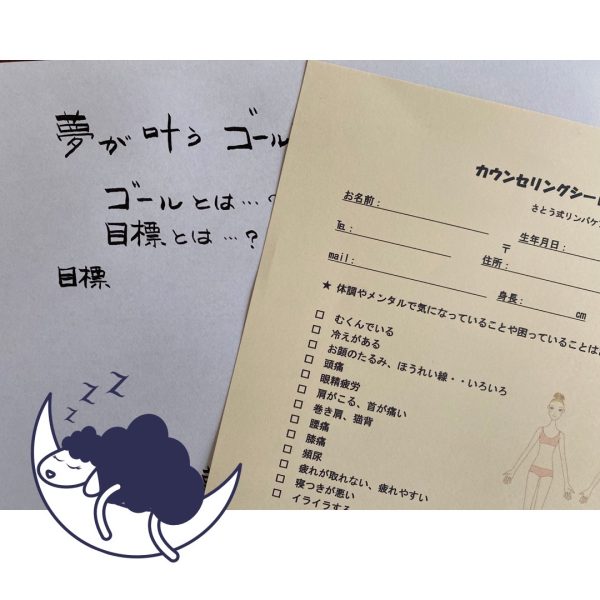 夢が叶う ゴール
ゴールとは…?
目標とは…?
目標
カウンセリングシート
さとう式リンパケア
お名前:
生年月日:
℡:
〒
住所:
mail:
身長:
cm
★ 体調やメンタルで気になっていることや困っていることは
□ むくんでいる
□ 冷えがある
□ お顔のたるみ、ほうれい線・・いろいろ
□ 頭痛
□ 眼精疲労
□ 肩がこる、首が痛い
□ 巻き肩、猫背
□ 腰痛
□ 膝痛
□ 頻尿
□ 疲れが取れない、疲れやすい
□ 寝つきが悪い
□ イライラする
z z z